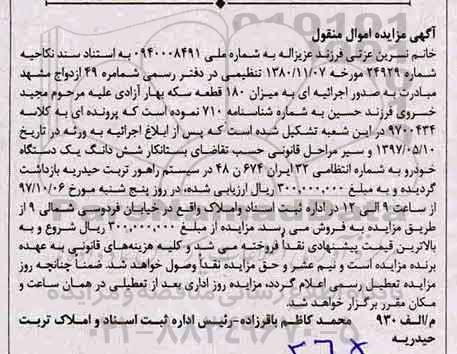 آگهی مزایده اموال منقول
خانم نسرین عزتی فرزند عزیزاله به شماره ملی ۰۹۴۰۰۰۸۴۹۱ به استناد سند نکاحیه
شماره ۲۴۹۲۹ مورخه ۱۳۸۰/۱۱/۰۷ تنظیمی در دفتر رسمی شماره ۴۹ ازدواج مشهد
مبادرت به صدور اجرائیه ای به میزان ۱۸۰ قطعه سکه بهار آزادی علیه مرحوم مجید
خسروی فرزند حسین به شماره شناسنامه ۷۱۰ نموده است که پرونده ای به کلاسه
۹۷۰۰۴۳۴ در این شعبه تشکیل شده است که پس از ابلاغ اجرائیه به ورثه در تاریخ
۱۳۹۷/۰۵/۱۰ و سیر مراحل قانونی حسب تقاضای بستانکار شش دانگ یک دستگاه
خودرو به شماره انتظامی ۳۲ ایران ۶۷۴ ن ۴۸ در سیستم راهور تربت حیدریه بازداشت
گردیده و به مبلغ ۳۰۰,۰۰۰,۰۰۰ ریال ارزیابی شده، در روز پنج شنبه مورخ ۹۷/۱۰/۰۶
از ساعت ۹ الی ۱۲ در اداره ثبت اسناد واملاک واقع در خیابان فردوسی شمالی ۹ از
طریق مزایده به فروش می رسد. مزایده از مبلغ ۳۰۰,۰۰۰,۰۰۰ ریال شروع و به
بالاترین قیمت پیشنهادی نقداً فروخته می شد و کلیه هزینه‌های قانونی به عهده
برنده مزایده است و نیم عشر و حق مزایده نقداً وصول خواهد شد. ضمناً چنانچه روز
مزایده تعطیل رسمی اعلام گردد، مزایده روز اداری بعد از تعطیلی در همان ساعت و
مکان مقرر برگزار خواهد شد.
م/الف ۹۳۰ محمد کاظم باقرزاده-رئیس اداره ثبت اسناد و املاک تربت
حیدریه